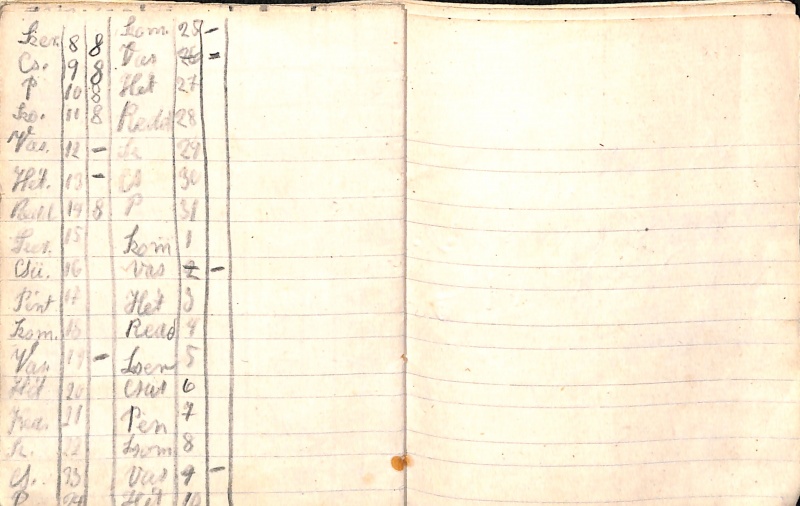 Szer. 8 8 Szom. 25 -
Cs. 9 8 Vas 26 -
P 10 8 Hét 27
Szo. 11 8 Kedd 28
Vas. 12 - Sz 29
Hét. 13 - Cs 30
Kedd 14 8 P 31
Szer. 15 Szom 1
Csü. 16 Vas 2 -
Pént 17 Hét 3
Szom. 18 Kedd 4
Vas. 19 - Szer 5
Hét 20 Csüt 6
Ked. 21 Pén 7
Sz. 22 Szom 8
Cs. 23 Vas 9 -
P 24 Hét 10